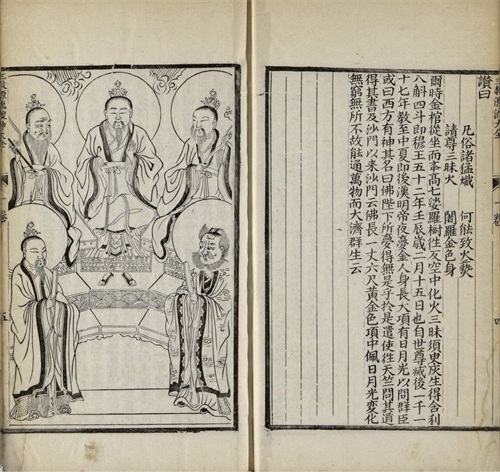 讚曰
凡俗諸猛熾　何能致火爇
請尊三昧火　闍維金色身
爾時金棺從坐而舉高七娑羅樹往反空中化火三昧須臾灰生得舍利
八斛四斗即穆王五十二年壬辰歲二月十五日也自世尊滅後一千一
十七年教至中夏即後漢明帝夜夢金人身長大項有日月光以問群臣
或曰西方有神其名曰佛陛下所夢得無是乎於是遣使往天竺問其道
得其書及沙門以來沙門云佛長一丈六尺黃金色項中佩日月光變化
無窮無所不故能通萬物而大濟群生云
四
五